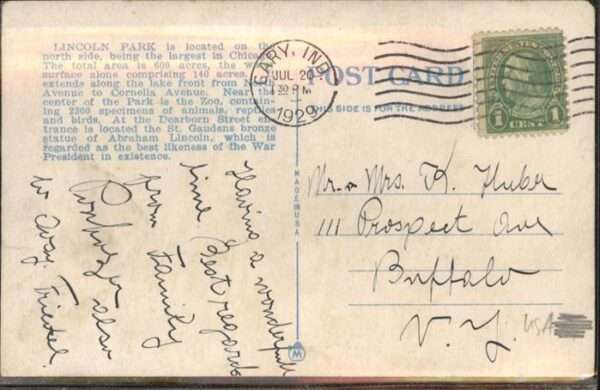 LINCOLN PARK is located on the
north side, being the largest in Chicago.
The total area is 600 acres, the
surface alone comprising 140 acres.
extends along the lake front from
Avenue to Cornelia Avenue. Near the
center of the Park is the Zoo, contain-
ing 2300 specimens of animals, reptiles
and birds. At the Dearborn Street en-
trance is located the St. Gaudens bronze
statue of Abraham Lincoln, which is
regarded as the best likeness of the War
President in existence.
GARY, IND.
JUL 20
PM
1929
POST CARD
THIS SIDE IS FOR THE ADDRESS
1 CENT 1
MADE IN USA
Having a wonderful
time Best regards
from Family
also
to
Mr. & Mrs. K. Huber
111 Prospect Ave
Buffalo
N.Y. USA
M